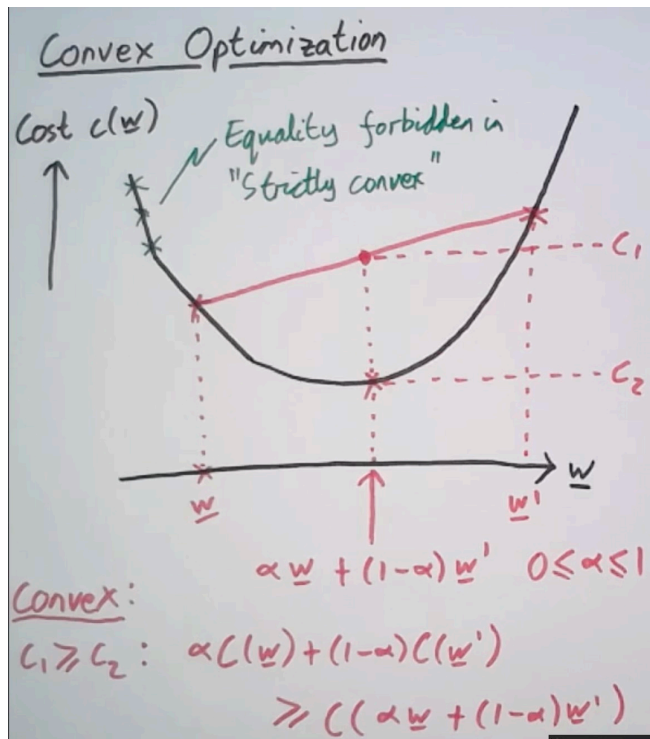 Convex Optimization
Cost c(w)
Equality forbidden in
"Strictly convex"
C₁
C₂
w
w
w'
αw + (1-α)w' 0≤α≤1
Convex:
C₁ ≥ C₂ : αC(w) + (1-α)C(w')
≥ C(αw + (1-α)w')